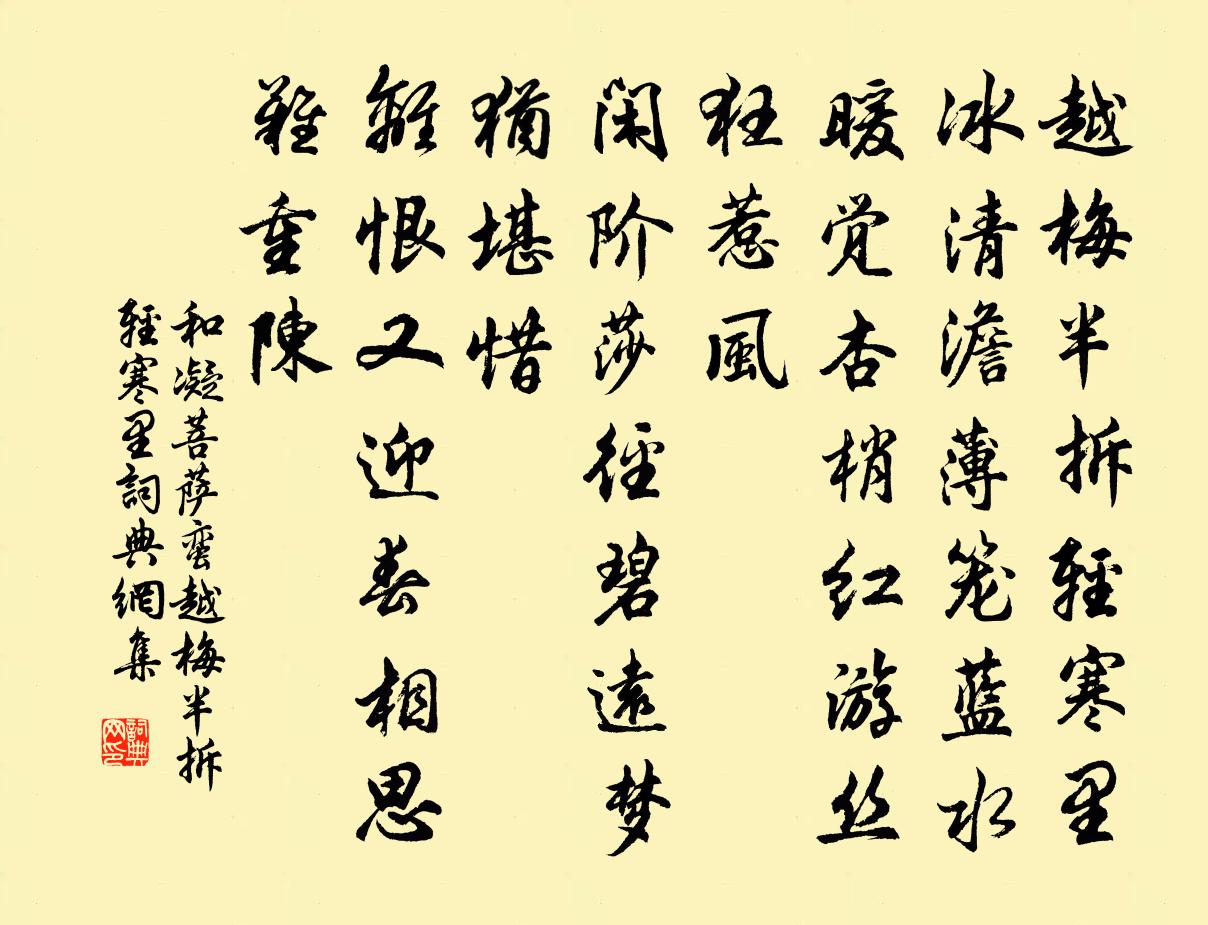 越梅半拆輕寒里
冰清澹薄笼藍水
暖觉杏梢红游丝
狂惹風
闲阶莎径碧遠梦
猶堪惜
離恨又迎春相思
難重陳
和凝菩萨蛮越梅半拆
輕寒里詞典網集
詞典
网印